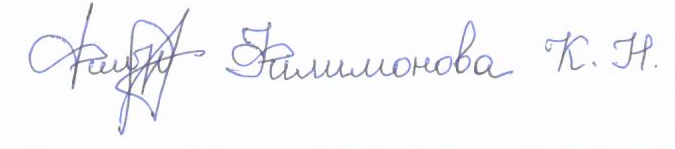 Филимонова К. Н.